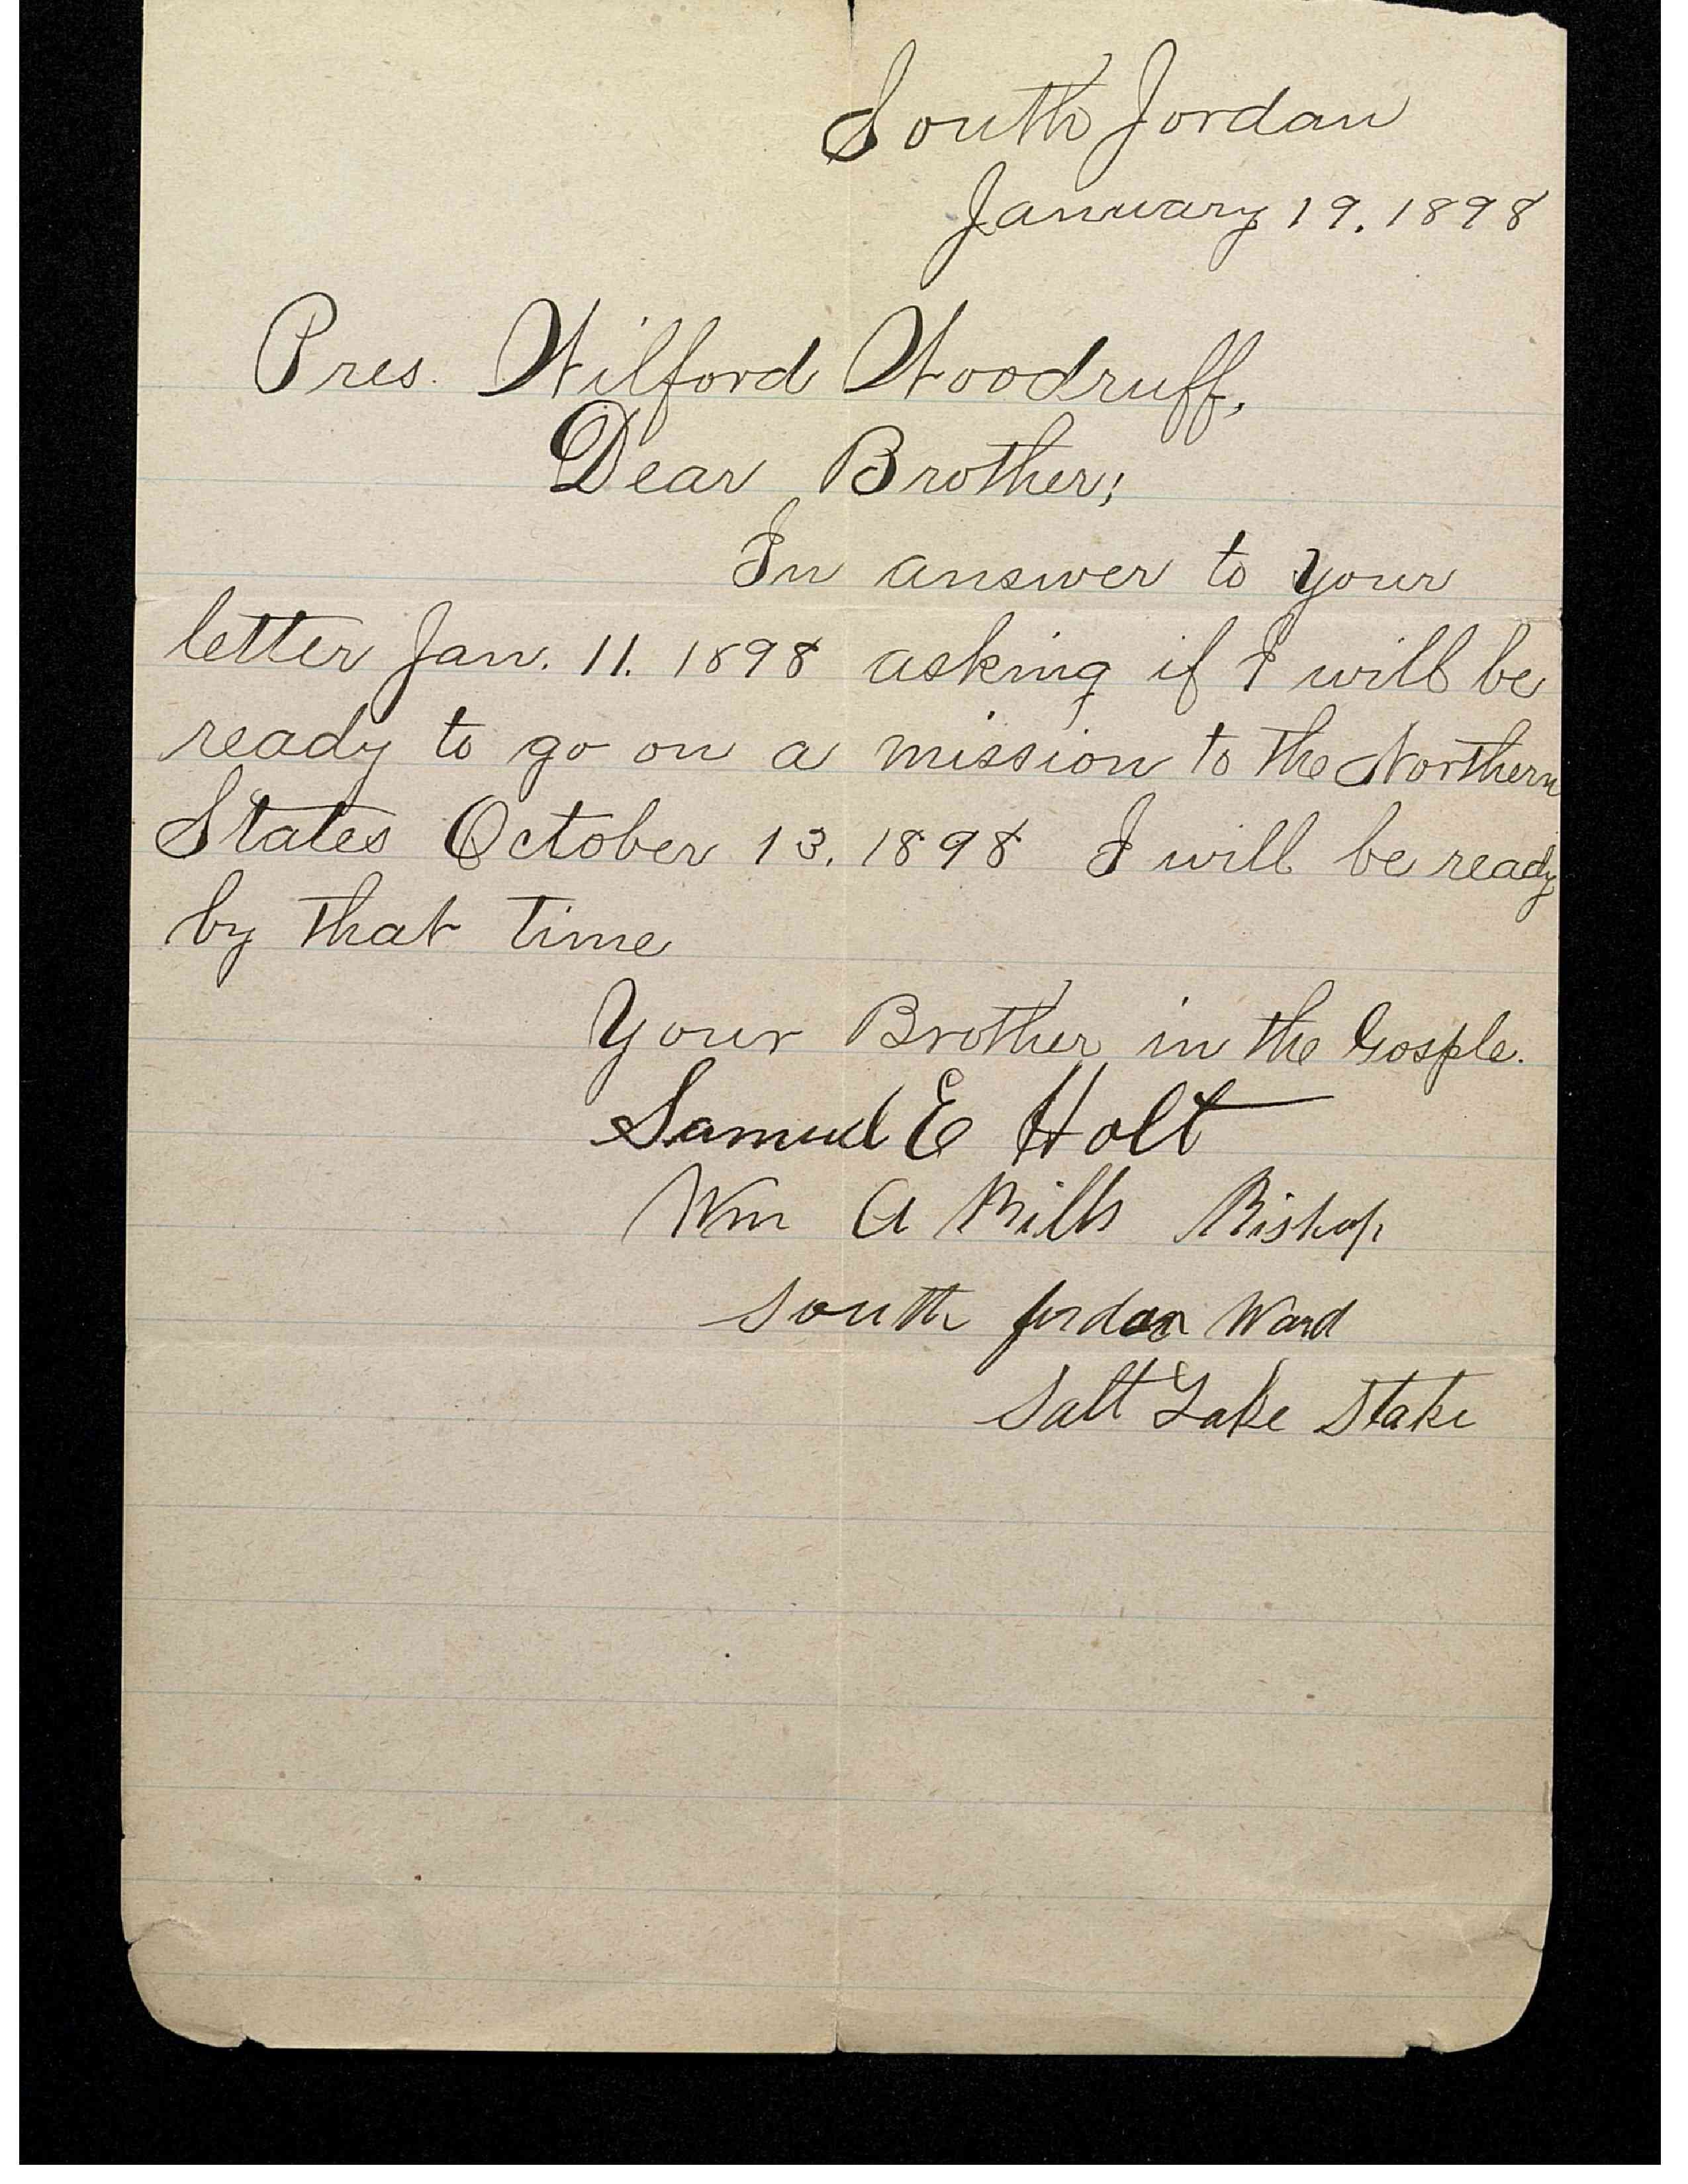 South Jordan
January 19. 1898
Pres. Wilford Woodruff,
Dear Brother;
In answer to your
letter Jan. 11. 1898 asking if I will be
ready to go on a mission to the Northern
States October 13. 1898 I will be ready
by that time
Your Brother in the Gosple.
Samuel E Holt
Wm A Mills Bishop
South Jordan Ward
Salt Lake Stake